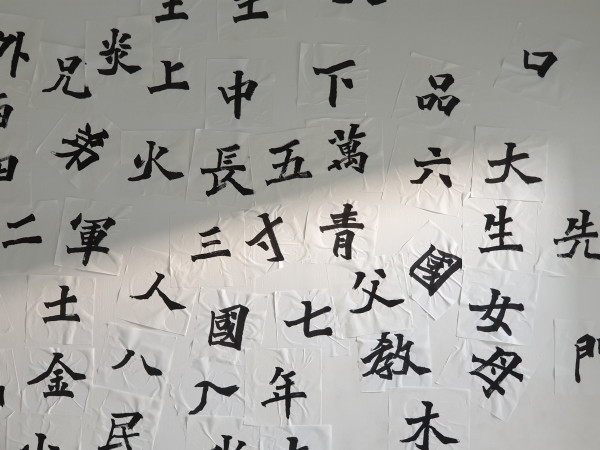 外 兄 炎 上 中 下 品 口
火 長 五 萬 六 大
二 軍 三 寸 青 國 生 先
土 人 國 七 父 女
金 八 年 教 母 門
民 木